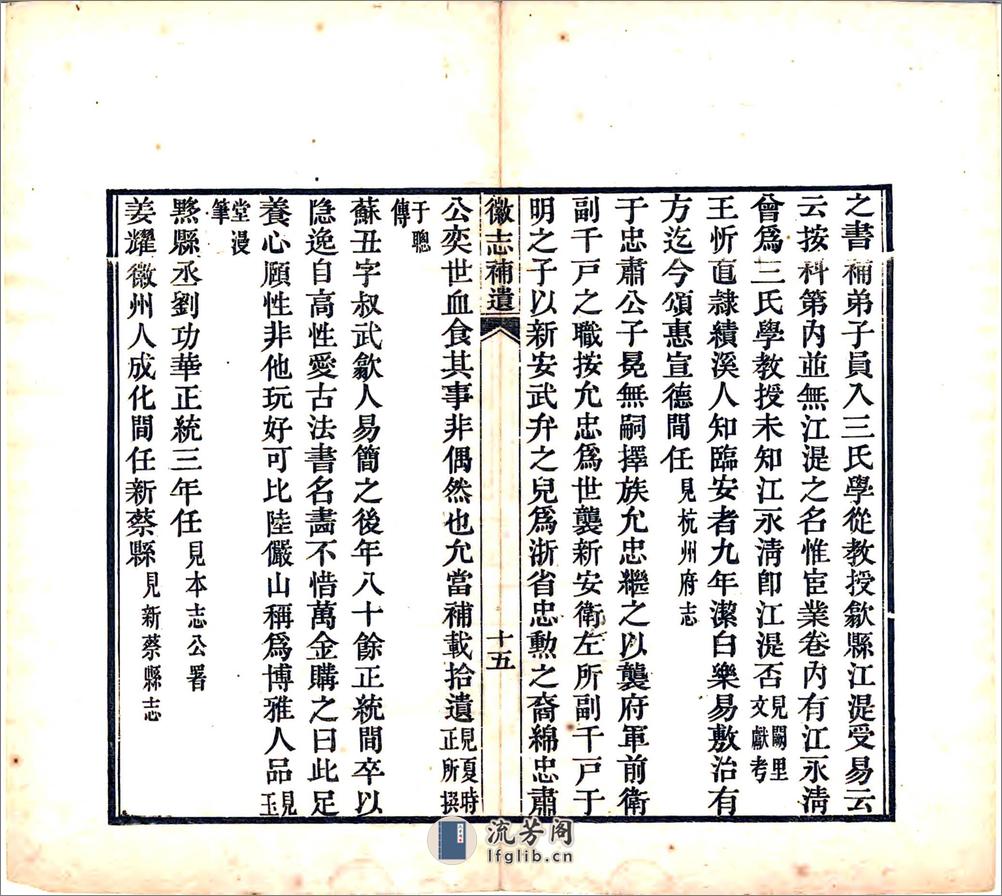 之書補弟子員入三氏學從教授歙縣江湜受易云
云按科第內並無江湜之名惟宦業卷內有江永淸
曾爲三氏學教授未知江永淸卽江湜否見闕里文獻考
王忻直隷績溪人知臨安者九年潔白樂易敷治有
方迄今頌惠宣德間任見杭州府志
于忠肅公子冕無嗣擇族允忠繼之以襲府軍前衛
副千戸之職按允忠爲世襲新安衛左所副千戸于
明之子以新安武弁之兒爲浙省忠勲之裔綿忠肅
徽志補遺 十五
公奕世血食其事非偶然也允當補載拾遺見夏時正所撰
于聰傳
蘇丑字叔武歙人易簡之後年八十餘正統間卒以
隐逸自高性愛古法書名畵不惜萬金購之曰此足
養心頤性非他玩好可比陸儼山稱爲博雅人品見玉
堂漫筆
黟縣丞劉功華正統三年任見本志公署
姜耀徽州人成化間任新蔡縣見新蔡縣志
流芳阁
lfglib.cn